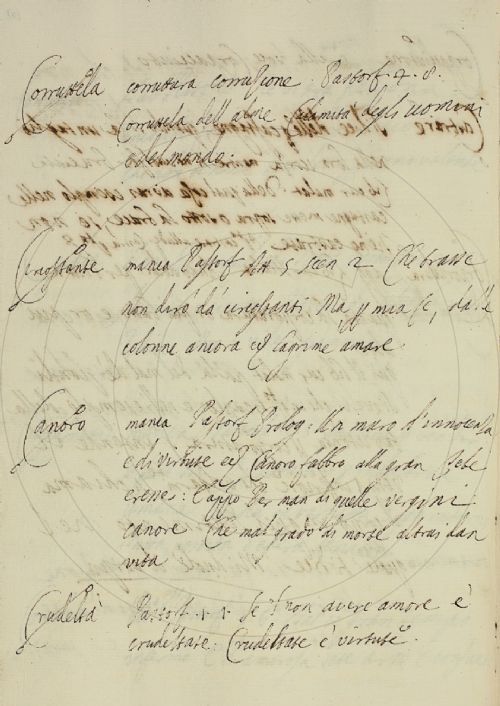 Corruttela corruttura corruzione. Pastorf. 4. 8.
Corruttela dell'alme. Calamita degli uomini
e del mondo.
Circostante manca Pastorf. Att 5 scen 2 Che trasse
non dirò da' circostanti, Ma, p mia fe, dalle
colonne ancora e lagrime amare.
Canoro manca Pastorf. Prolog: Un muro d'innocenza
e di virtute e Canoro fabbro alla gran Tebe
eresse: l'appo Per man di quelle vergini
canore Che mal grado di morte altrui dan
vita
Crudeltà Pastorf. 1. 1. Se 'l non avere amore è
crudeltate: Crudeltate è virtute.